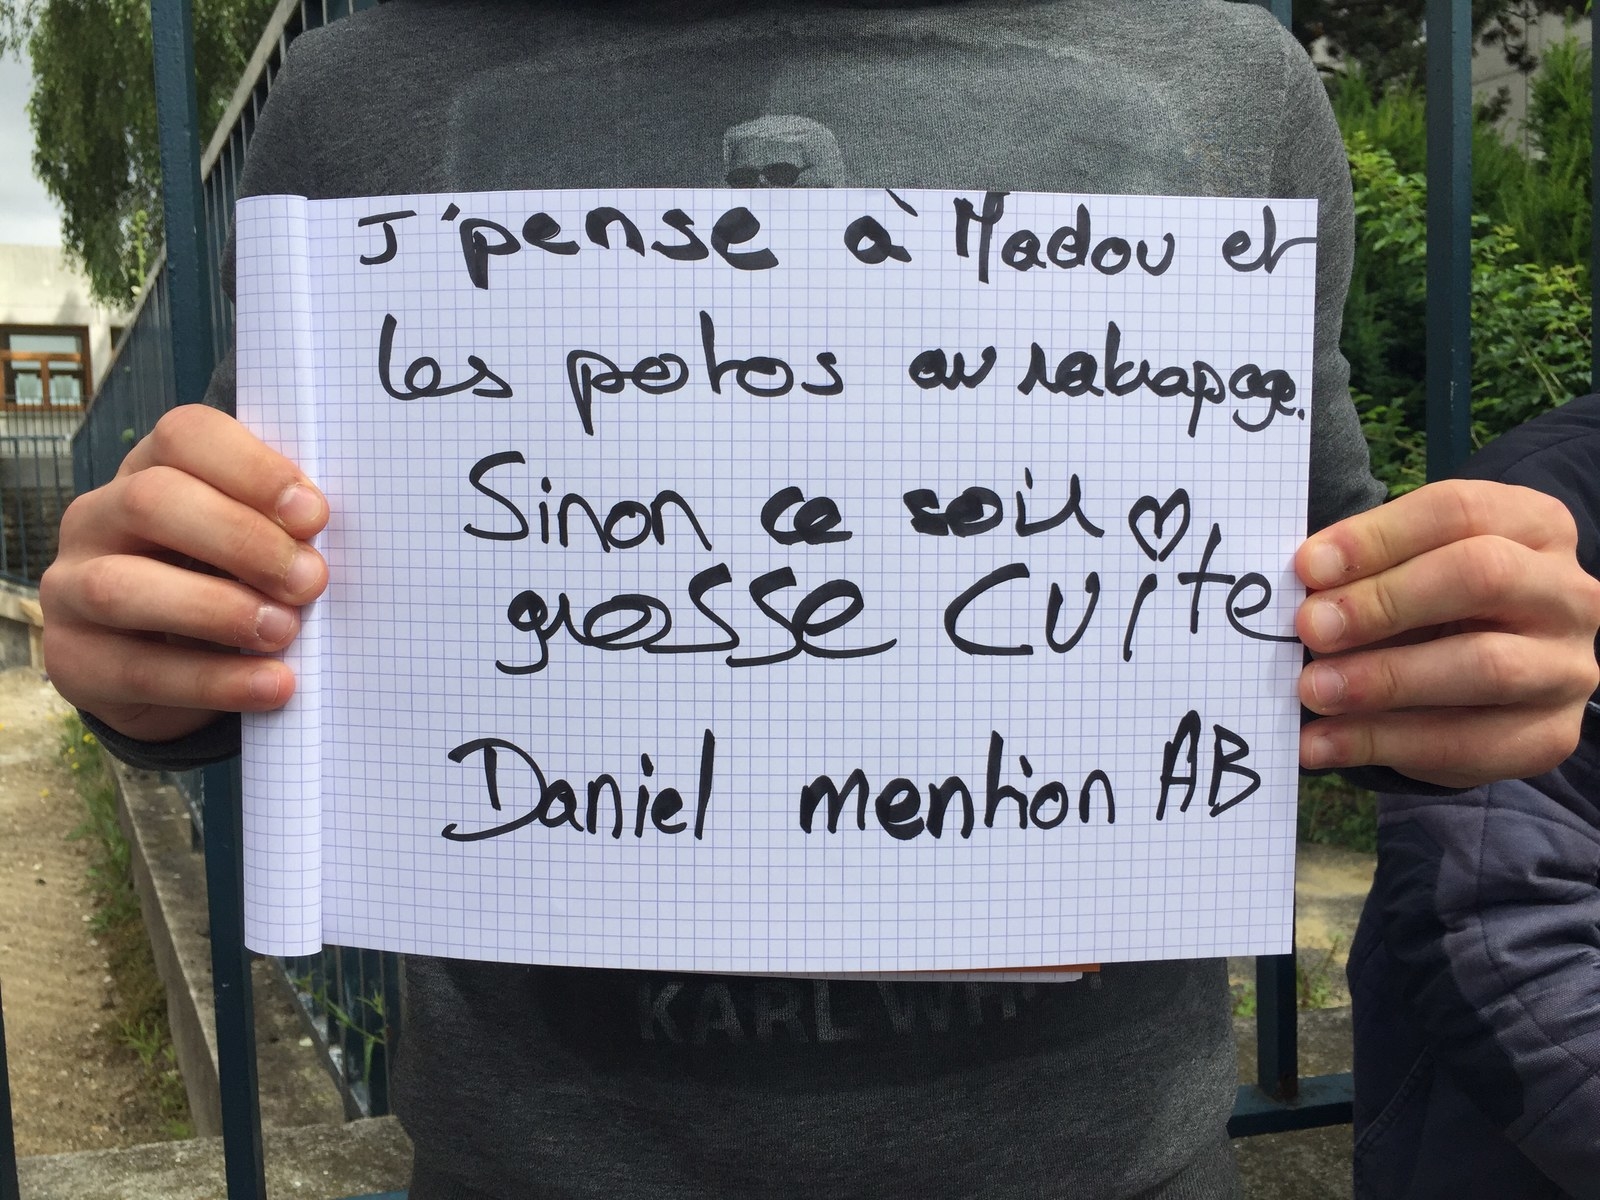 J'pense à Madou et
les potos au ratrapage.
Sinon ce soir ♡
grosse CUite
Daniel mention AB
KARL WH